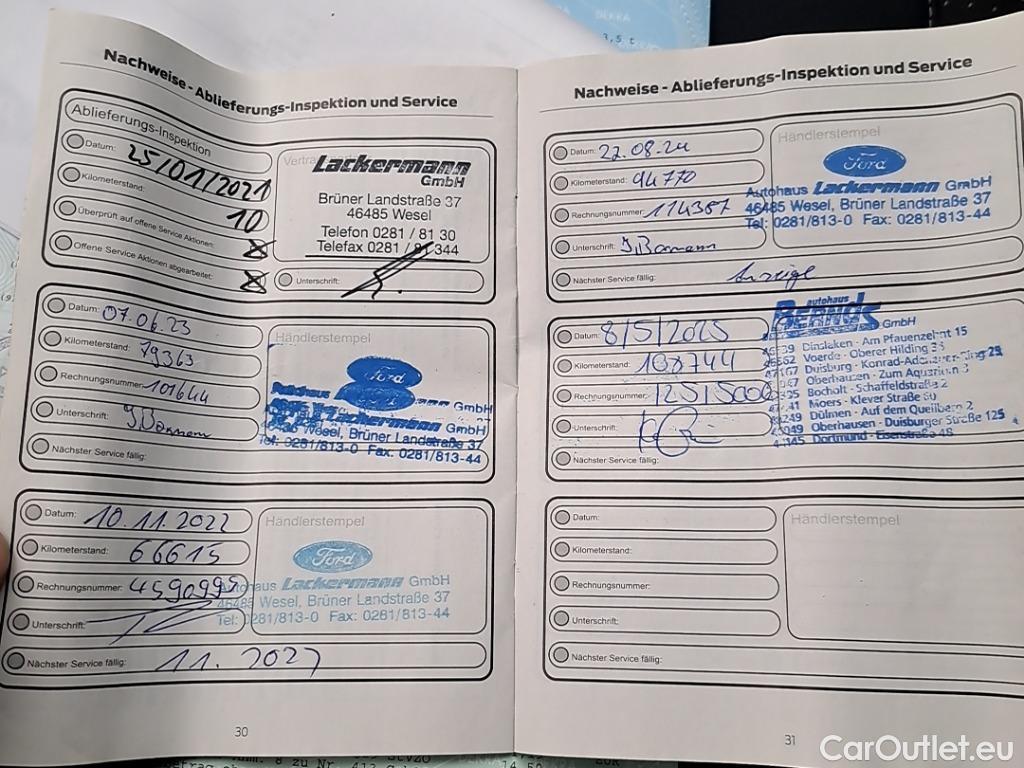 DEKRA
3,5 t
Nachweise - Ablieferungs-Inspektion und Service
Ablieferungs-Inspektion
Datum: 25/01/2021
Kilometerstand: 10
Überprüft auf offene Service Aktionen:
Offene Service Aktionen abgearbeitet:
Lackermann
GmbH
Brüner Landstraße 37
46485 Wesel
Telefon 0281 / 81 30
Telefax 0281 / 81 344
Unterschrift:
Datum: 07.06.23
Kilometerstand: 79363
Rechnungsnummer: 101644
Unterschrift:
Nächster Service fällig:
Händlerstempel
Ford
Autohaus Lackermann GmbH
Wesel, Brüner Landstraße 37
Tel: 0281/813-0 Fax: 0281/813-44
Datum: 10.11.2022
Kilometerstand: 66615
Rechnungsnummer: 4590995
Unterschrift:
Nächster Service fällig: 11.2023
Händlerstempel
Ford
Autohaus Lackermann GmbH
46485 Wesel, Brüner Landstraße 37
Tel: 0281/813-0 Fax: 0281/813-44
30
Nachweise - Ablieferungs-Inspektion und Service
Datum: 22.08.24
Kilometerstand: 94770
Rechnungsnummer: 114387
Unterschrift:
Nächster Service fällig: Anzeige
Händlerstempel
Ford
Autohaus Lackermann GmbH
46485 Wesel, Brüner Landstraße 37
Tel: 0281/813-0 Fax: 0281/813-44
Datum: 8/5/2025
Kilometerstand: 108744
Rechnungsnummer:
Unterschrift:
Nächster Service fällig:
autohaus
BERNDS GmbH
Dinslaken - Am Pfauenzehnt 15
Voerde - Oberer Hilding
Duisburg - Konrad-Adenauer-Ring 25
Oberhausen - Zum Aquarium
Bocholt - Schaffeldstraße 2
Moers - Klever Straße
Dülmen - Auf dem Quellberg 2
Oberhausen - Duisburger Straße 125
Dortmund - Eisenstraße 48
Datum:
Kilometerstand:
Rechnungsnummer:
Unterschrift:
Nächster Service fällig:
Händlerstempel
31
CarOutlet.eu